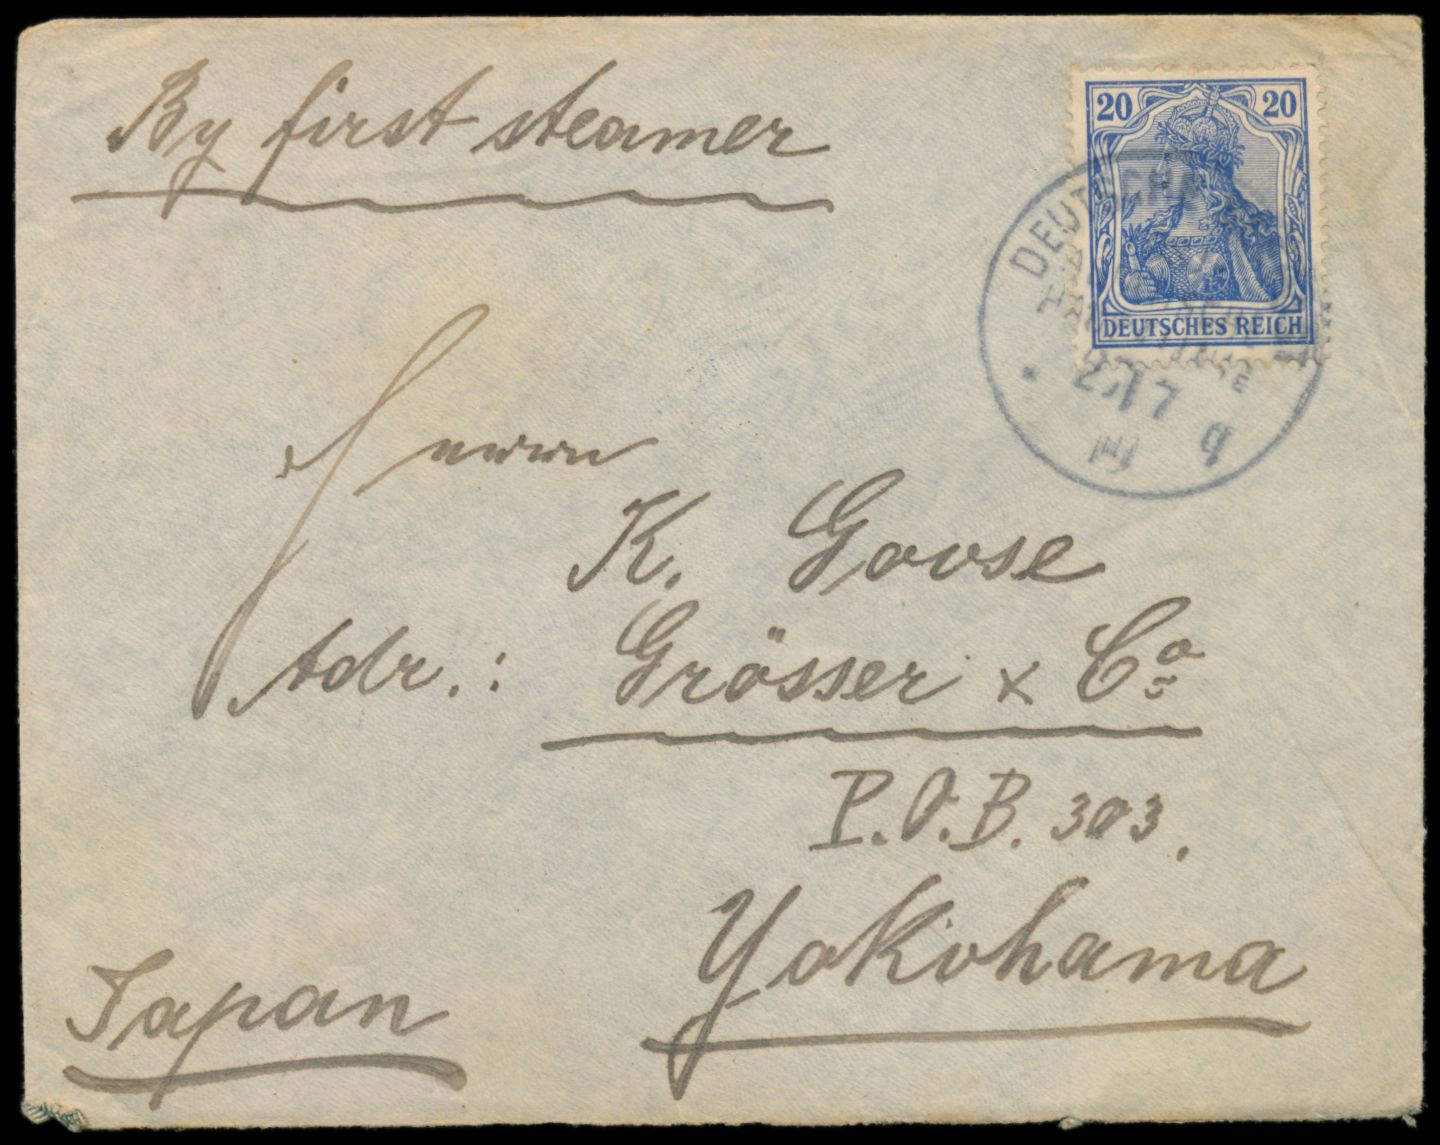 By first steamer
20 20
DEUTSCHES REICH
Herrn
K. Goose
Adr.: Grösser & Co
P.O.B. 303.
Yokohama
Japan